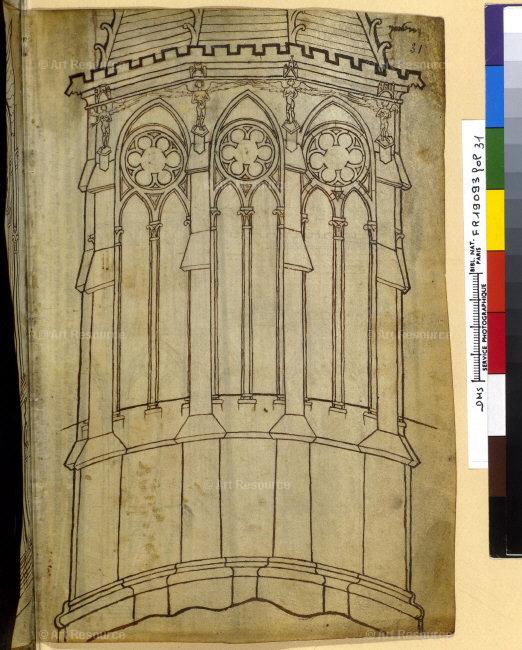 31
© Art Resource
© Art Resource
© Art Resource
© Art Resource
© Art Resource
© Art Resource
© Art Resource
BIBL. NAT.
PARIS
FR 19093 fol 31
SERVICE PHOTOGRAPHIQUE
DMS